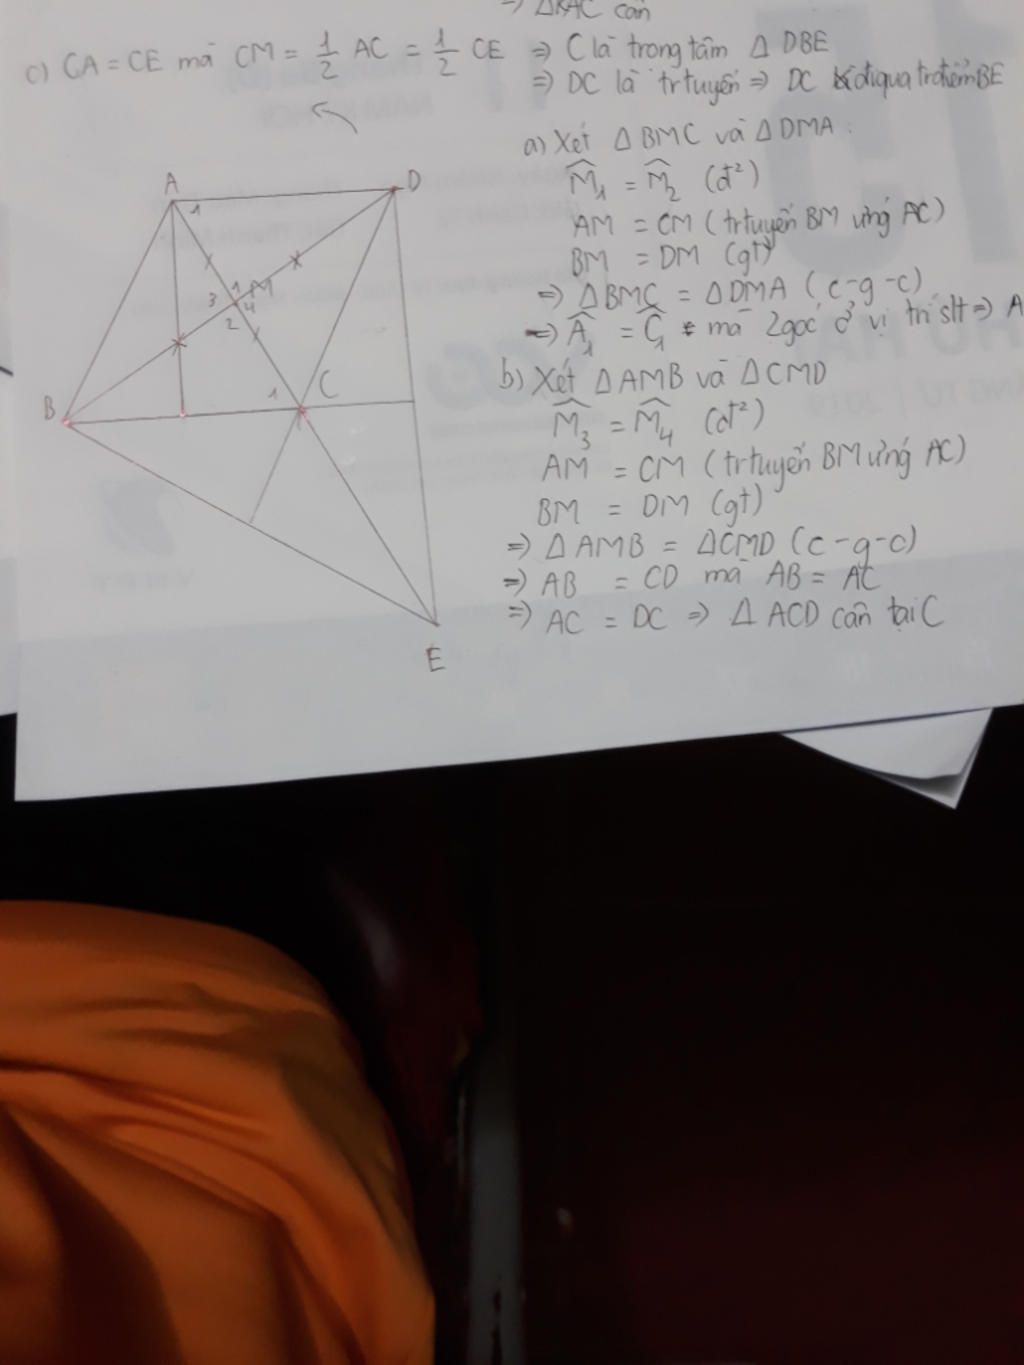 => ΔKAC cân
c) CA = CE mà CM = 1/2 AC = 1/2 CE => C là trong tâm Δ DBE
=> DC là trtuyến => DC điqua trđiểm BE
a) Xét Δ BMC và Δ DMA :
M̂₁ = M̂₂ (đ²)
AM = CM (trtuyến BM ứng AC)
BM = DM (gt)
=> Δ BMC = Δ DMA (c-g-c)
=> Â₁ = Ĉ₁ mà 2góc ở vị trí slt => A
b) Xét Δ AMB và Δ CMD
M̂₃ = M̂₄ (đ²)
AM = CM (trtuyến BM ứng AC)
BM = DM (gt)
=> Δ AMB = ΔCMD (c-g-c)
=> AB = CD mà AB = AC
=> AC = DC => Δ ACD cân tại C
A
D
1
M
1
3
4
2
B
1
C
E